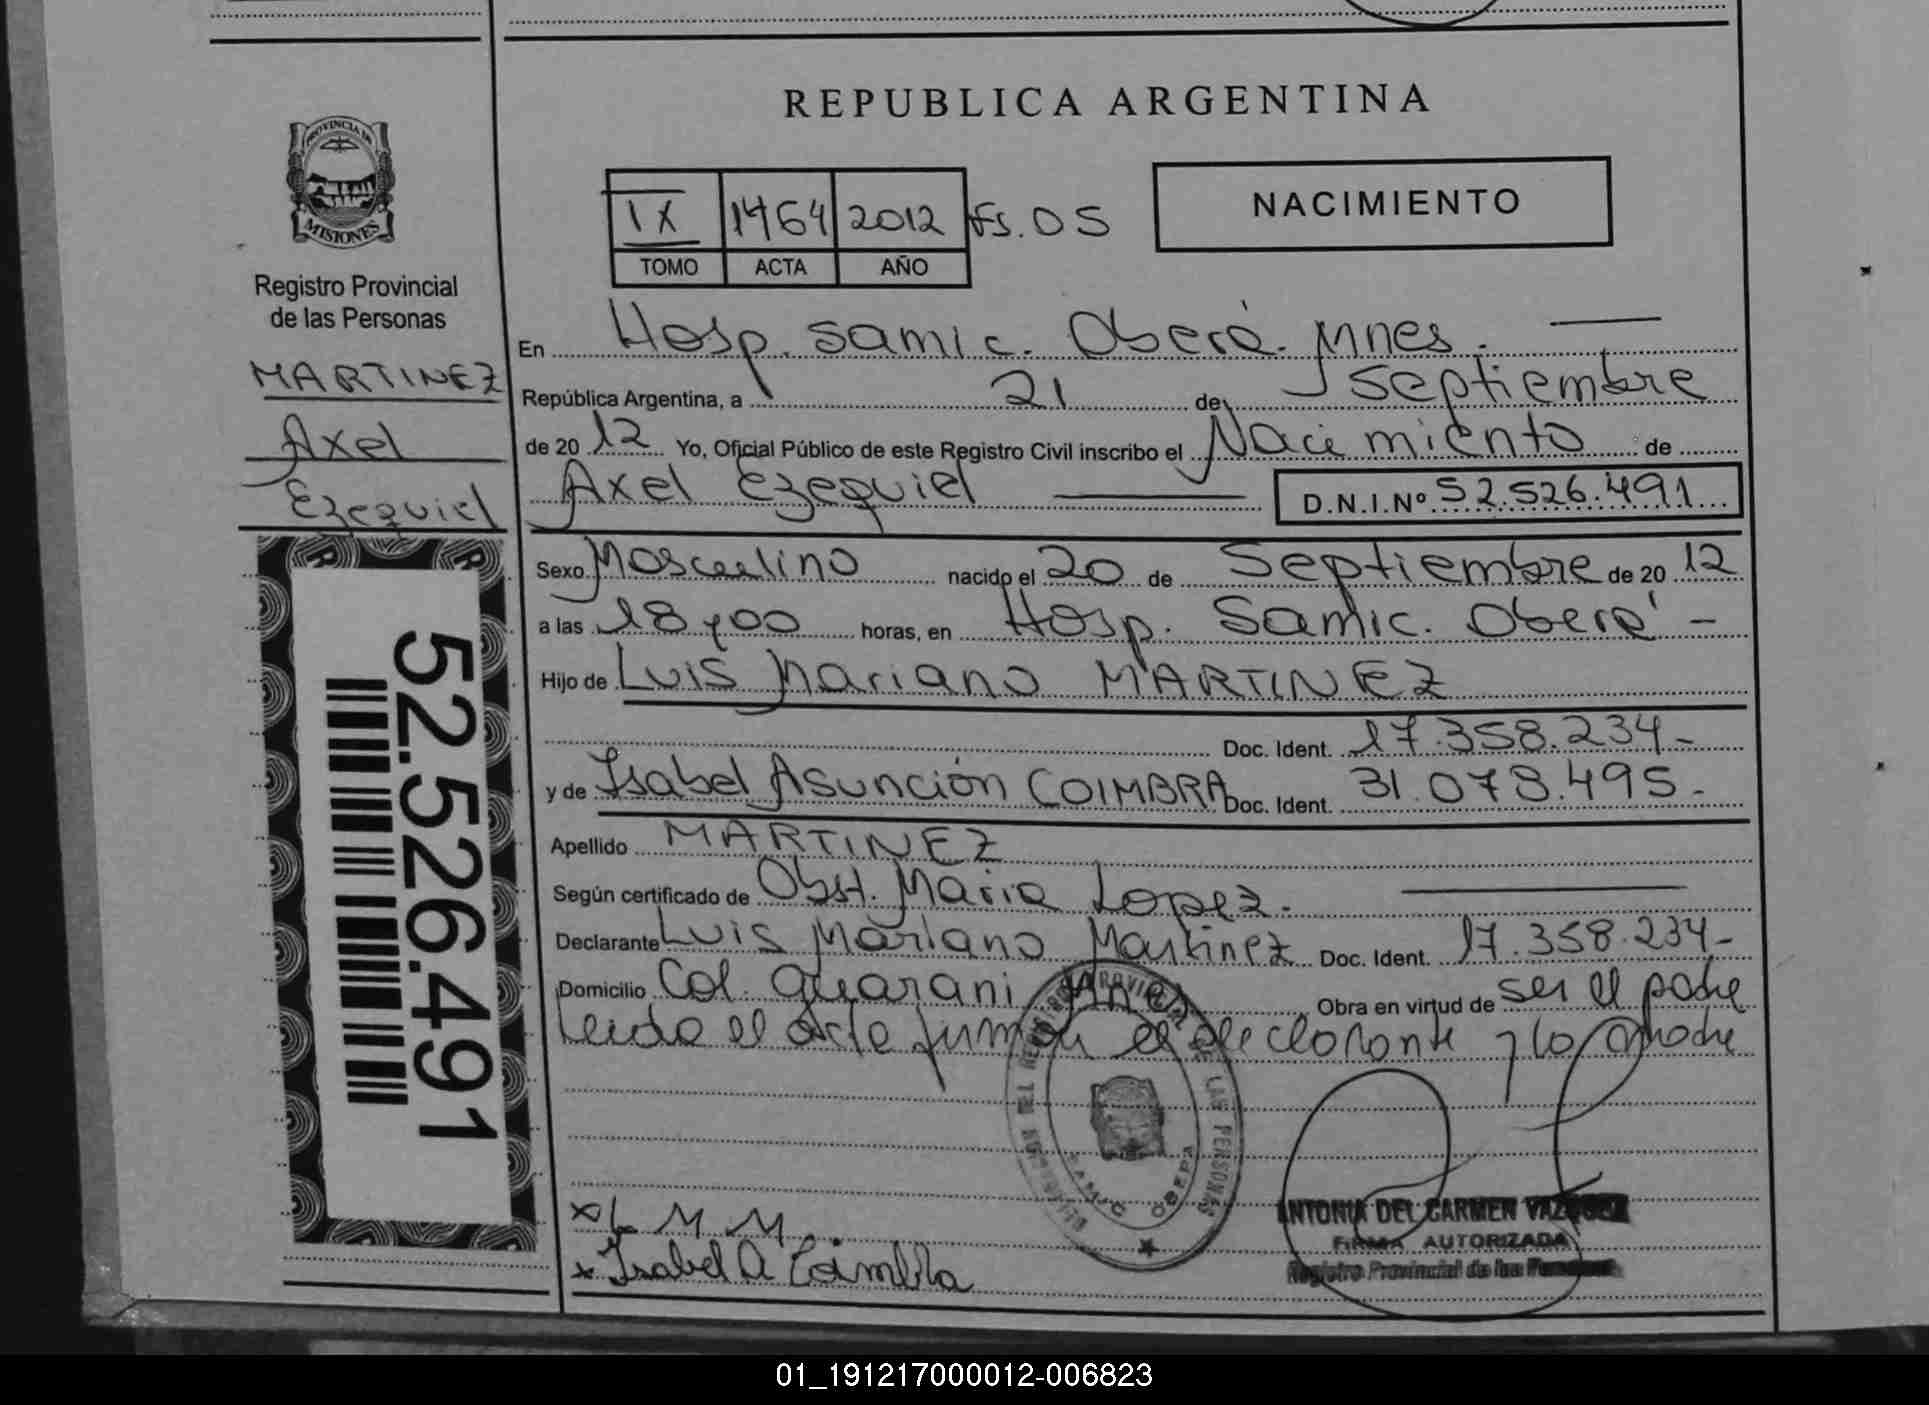 REPUBLICA ARGENTINA
PROVINCIA DE
MISIONES
Registro Provincial
de las Personas
MARTINEZ
Axel
Ezequiel
52.526.491
IX 1464 2012 Fs. 05
TOMO ACTA AÑO
NACIMIENTO
En Hosp. Samic. Oberá. Mnes.
República Argentina, a 21 de Septiembre
de 20 12 Yo, Oficial Público de este Registro Civil inscribo el Nacimiento de
Axel Ezequiel D.N.I.Nº 52.526.491
Sexo Masculino nacido el 20 de Septiembre de 20 12
a las 18,00 horas, en Hosp. Samic. Oberá -
Hijo de Luis Mariano MARTINEZ
Doc. Ident. 17.358.234-
y de Isabel Asunción COIMBRA Doc. Ident. 31.078.495-
Apellido MARTINEZ
Según certificado de Obst. Maria Lopez.
Declarante Luis Mariano Martinez Doc. Ident. 17.358.234-
Domicilio Col. Guarani Mnes Obra en virtud de ser el padre
Leida el acta firman el declarante y la madre
PROVINCIAL DE LAS PERSONAS
SAMIC OBERA
x L M. M.
x Isabel A Coimbra
ANTONIA DEL CARMEN VAZQUEZ
FIRMA AUTORIZADA
Registro Provincial de las Personas
01_191217000012-006823